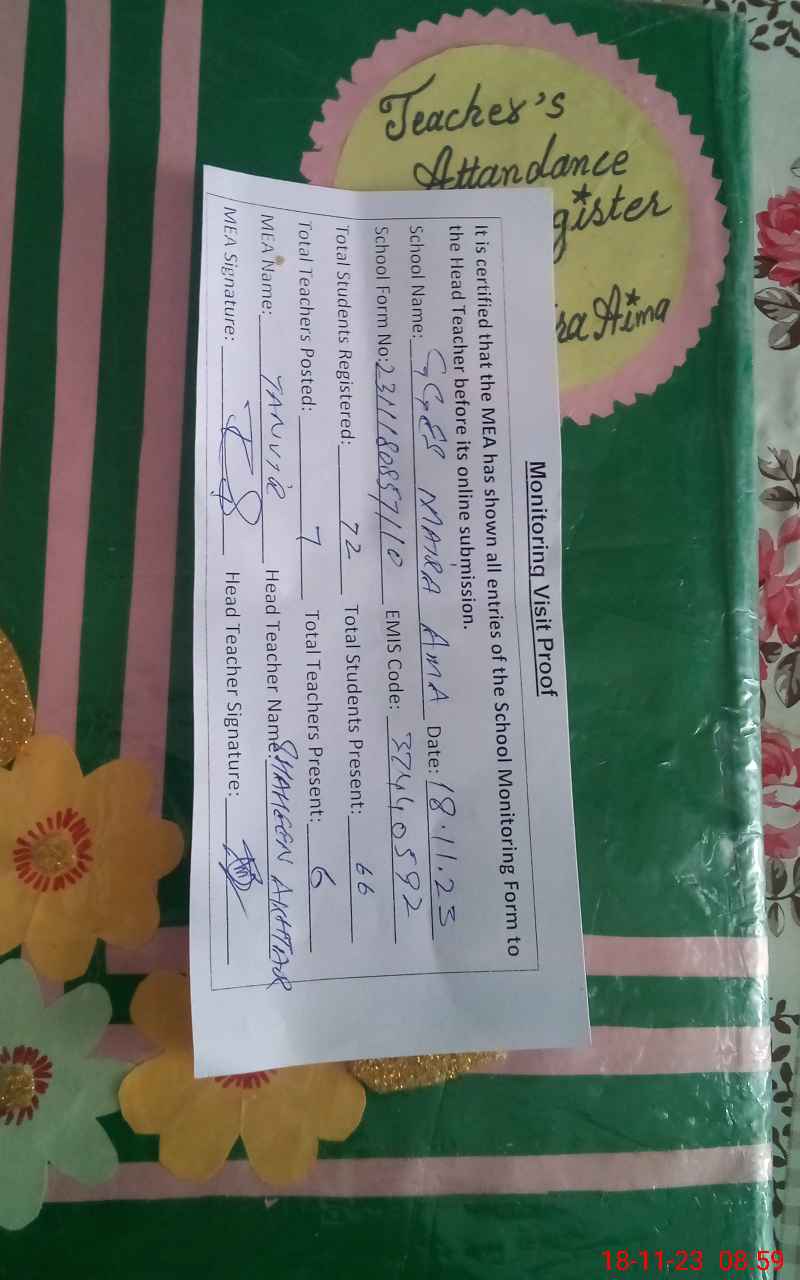 Teacher's
Attandance
gister
ra Aima
Monitoring Visit Proof
It is certified that the MEA has shown all entries of the School Monitoring Form to
the Head Teacher before its online submission.
School Name: GGES MAIRA AMA Date: 18.11.23
School Form No: EMIS Code: 37440592
Total Students Registered: 72 Total Students Present: 66
Total Teachers Posted: 7 Total Teachers Present: 6
MEA Name: TANVIR Head Teacher Name: SHAHEEN AKHTAR
MEA Signature: Head Teacher Signature:
18-11-23 08.59